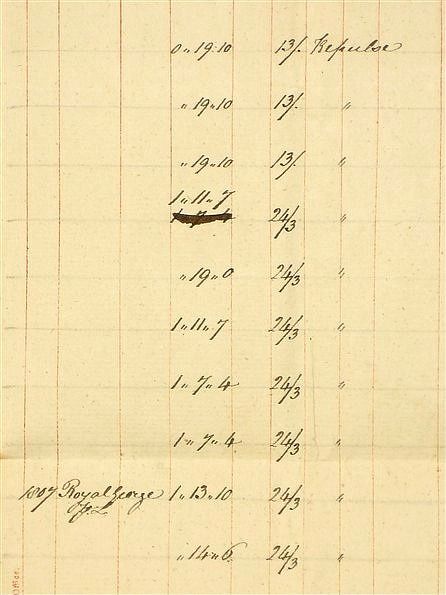 0 „ 19 „ 10 13/. Repulse
„ 19 „ 10 13/. „
„ 19 „ 10 13/. „
1 „ 11 „ 7
24/3 „
„ 19 „ 0 24/3 „
1 „ 11 „ 7 24/3 „
1 „ 7 „ 4 24/3 „
1 „ 7 „ 4 24/3 „
1807 Royal George 1 „ 13 „ 10 24/3 „
„ 14 „ 6 24/3 „